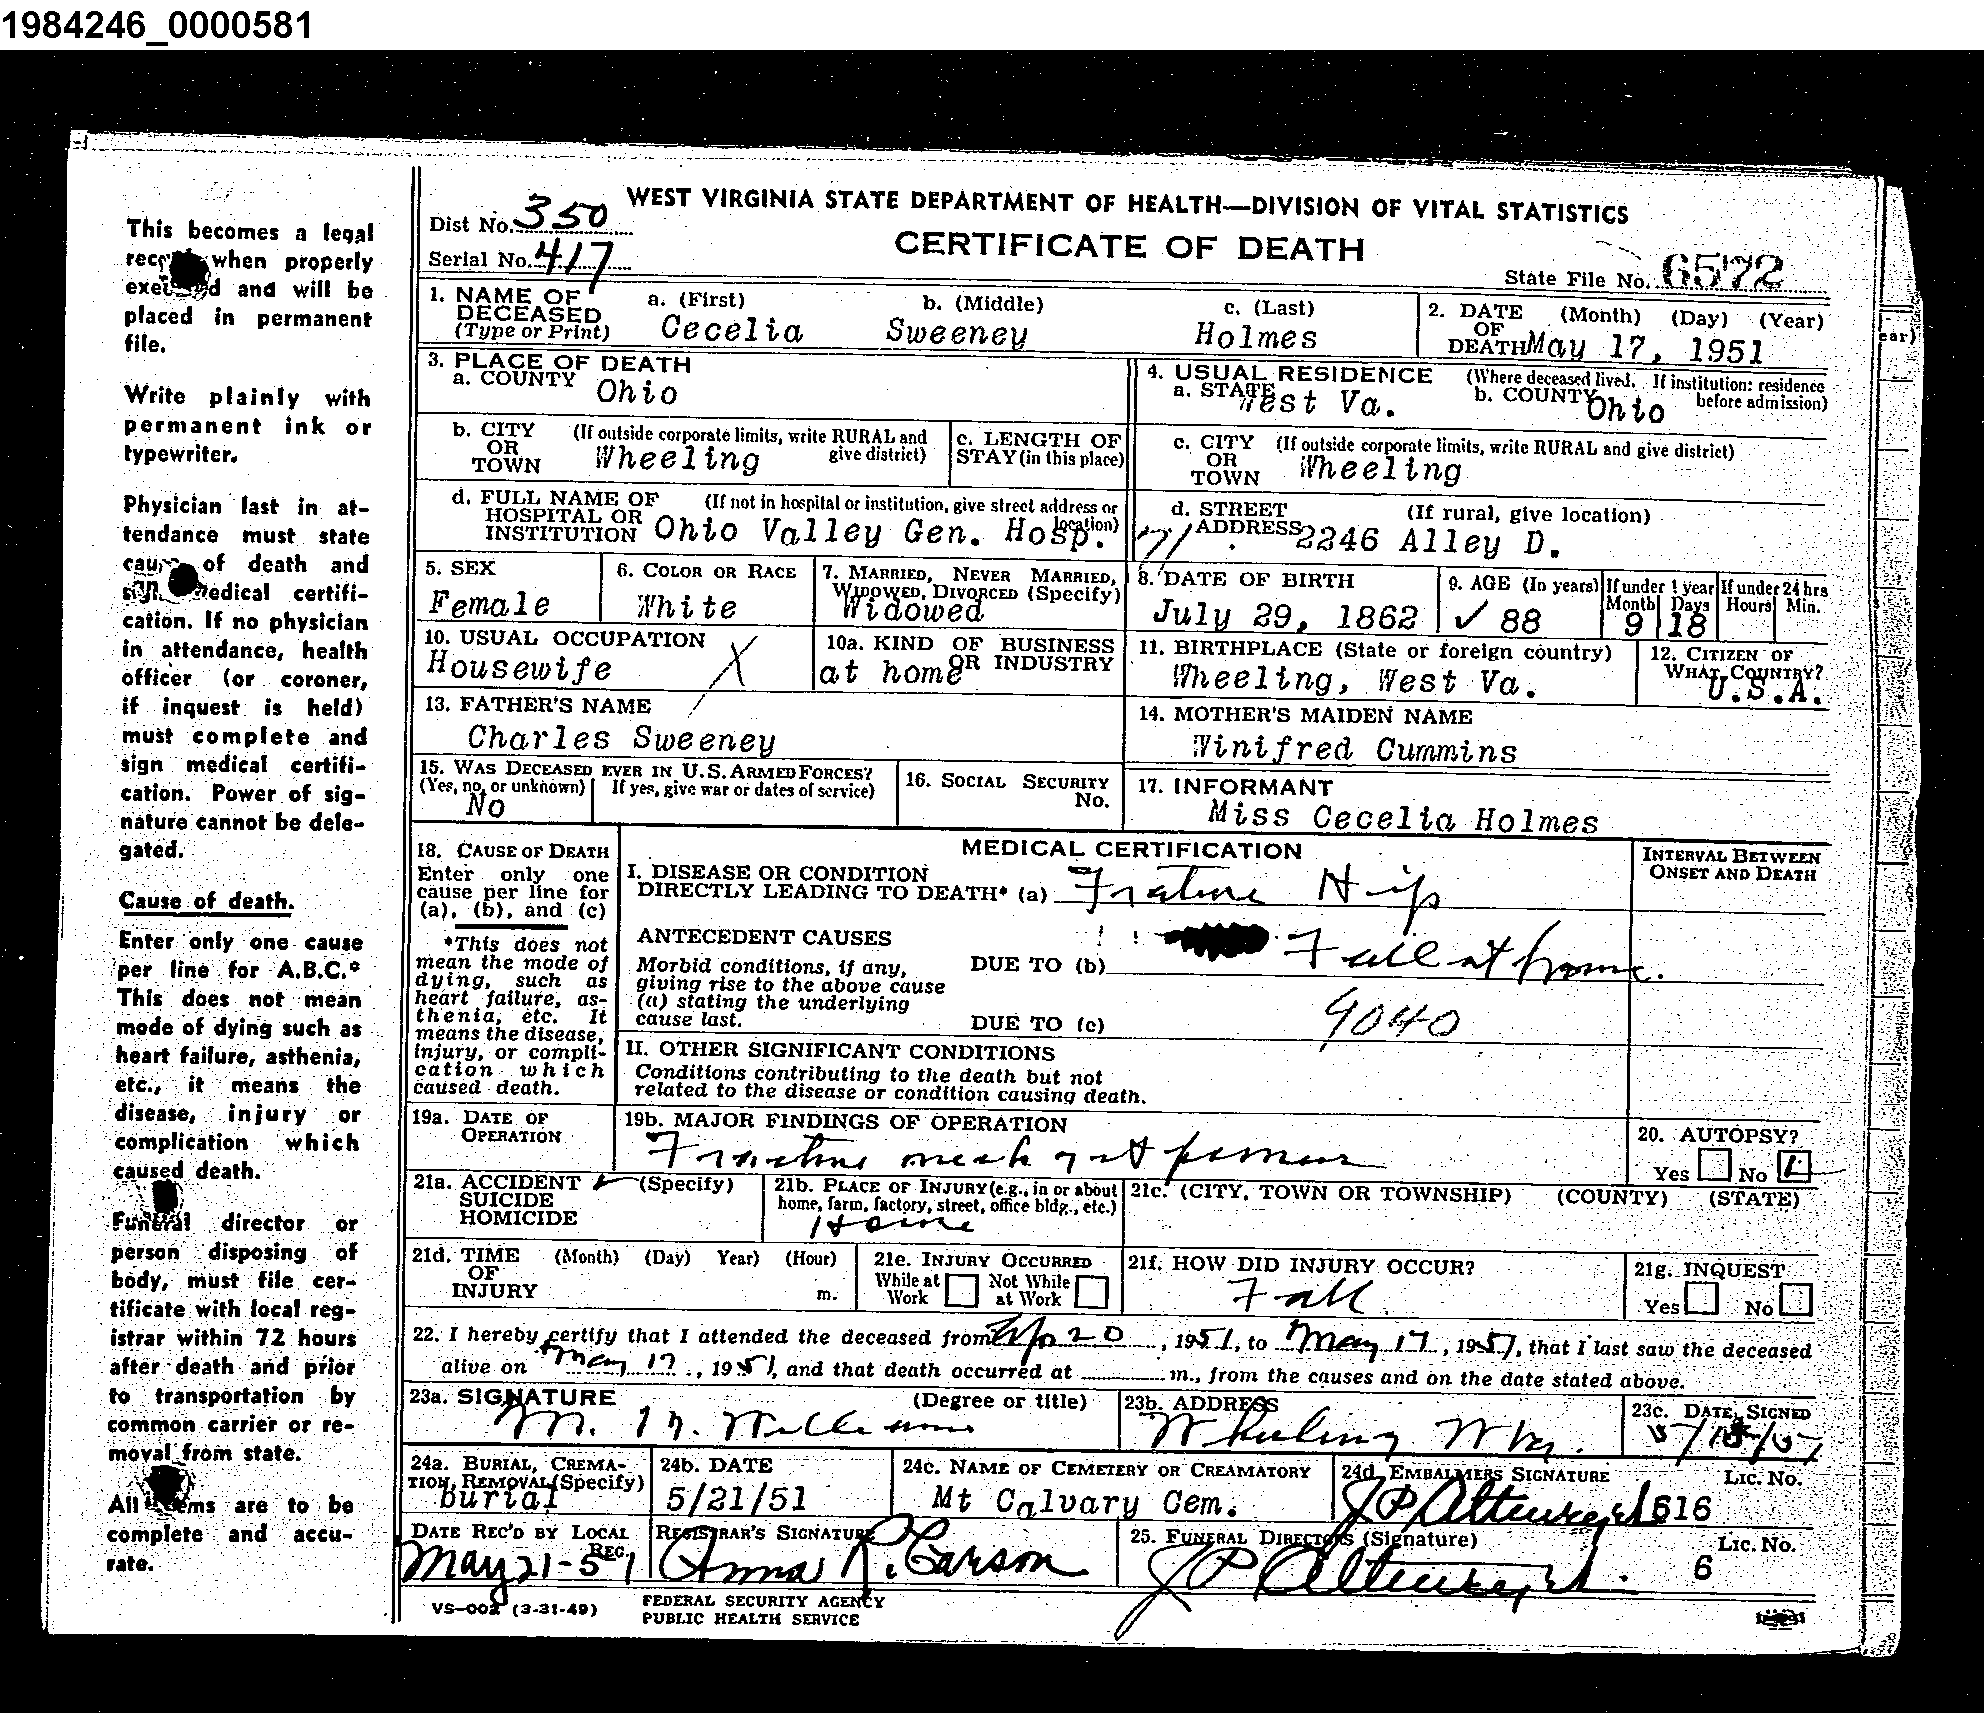 1984246_0000581
This becomes a legal
when properly
and will be
placed in permanent
file.
Write plainly with
permanent ink or
typewriter.
Physician last in at-
tendance must state
of death and
medical certifi-
cation. If no physician
in attendance, health
officer (or coroner,
if inquest is held)
must complete and
sign medical certifi-
cation. Power of sig-
nature cannot be dele-
gated.
Cause of death.
Enter only one cause
per line for A.B.C.*
This does not mean
mode of dying such as
heart failure, asthenia,
etc., it means the
disease, injury or
complication which
caused death.
Funeral director or
person disposing of
body, must file cer-
tificate with local reg-
istrar within 72 hours
after death and prior
to transportation by
common carrier or re-
moval from state.
All items are to be
complete and accu-
rate.
WEST VIRGINIA STATE DEPARTMENT OF HEALTH—DIVISION OF VITAL STATISTICS
Dist No. 350
CERTIFICATE OF DEATH
Serial No. 417
State File No. 6572
1. NAME OF DECEASED (Type or Print) a. (First) Cecelia b. (Middle) Sweeney c. (Last) Holmes
2. DATE OF DEATH (Month) (Day) (Year) May 17, 1951
3. PLACE OF DEATH
a. COUNTY Ohio
4. USUAL RESIDENCE (Where deceased lived. If institution: residence before admission)
a. STATE West Va. b. COUNTY Ohio
b. CITY OR TOWN (If outside corporate limits, write RURAL and give district) Wheeling
c. LENGTH OF STAY (in this place)
c. CITY OR TOWN (If outside corporate limits, write RURAL and give district) Wheeling
d. FULL NAME OF HOSPITAL OR INSTITUTION (If not in hospital or institution, give street address or location) Ohio Valley Gen. Hosp.
d. STREET ADDRESS (If rural, give location) 2246 Alley D.
71
5. SEX Female
6. COLOR OR RACE White
7. MARRIED, NEVER MARRIED, WIDOWED, DIVORCED (Specify) Widowed
8. DATE OF BIRTH July 29, 1862
9. AGE (In years) ✓ 88
If under 1 year Month 9 Days 18
If under 24 hrs Hours Min.
10. USUAL OCCUPATION Housewife X
10a. KIND OF BUSINESS OR INDUSTRY at home
11. BIRTHPLACE (State or foreign country) Wheeling, West Va.
12. CITIZEN OF WHAT COUNTRY? U.S.A.
13. FATHER'S NAME
Charles Sweeney
14. MOTHER'S MAIDEN NAME
Winifred Cummins
15. WAS DECEASED EVER IN U.S. ARMED FORCES?
(Yes, no, or unknown) No If yes, give war or dates of service)
16. SOCIAL SECURITY No.
17. INFORMANT
Miss Cecelia Holmes
18. CAUSE OF DEATH
Enter only one
cause per line for
(a), (b), and (c)
*This does not
mean the mode of
dying, such as
heart failure, as-
thenia, etc. It
means the disease,
injury, or compli-
cation which
caused death.
MEDICAL CERTIFICATION
INTERVAL BETWEEN
ONSET AND DEATH
I. DISEASE OR CONDITION
DIRECTLY LEADING TO DEATH* (a) Frature Hip
ANTECEDENT CAUSES
Morbid conditions, if any,
giving rise to the above cause
(a) stating the underlying
cause last.
DUE TO (b) Fall at home.
DUE TO (c) 9040
II. OTHER SIGNIFICANT CONDITIONS
Conditions contributing to the death but not
related to the disease or condition causing death.
19a. DATE OF OPERATION
19b. MAJOR FINDINGS OF OPERATION
Fracture neck
20. AUTOPSY?
Yes No
21a. ACCIDENT (Specify)
SUICIDE
HOMICIDE
21b. PLACE OF INJURY (e.g., in or about
home, farm, factory, street, office bldg., etc.)
Home
21c. (CITY, TOWN OR TOWNSHIP) (COUNTY) (STATE)
21d. TIME OF INJURY (Month) (Day) Year) (Hour) m.
21e. INJURY OCCURRED
While at Work Not While at Work
21f. HOW DID INJURY OCCUR?
Fall
21g. INQUEST
Yes No
22. I hereby certify that I attended the deceased from 20, 1951, to May 17, 1951, that I last saw the deceased
alive on May 17, 1951, and that death occurred at m., from the causes and on the date stated above.
23a. SIGNATURE (Degree or title)
23b. ADDRESS
Wheeling
23c. DATE SIGNED
24a. BURIAL, CREMA-
TION, REMOVAL (Specify)
burial
24b. DATE
5/21/51
24c. NAME OF CEMETERY OR CREAMATORY
Mt Calvary Cem.
24d. EMBALMERS SIGNATURE Lic. No.
616
DATE REC'D BY LOCAL REG.
May 21-51
REGISTRAR'S SIGNATURE
Anna R. Carson
25. FUNERAL DIRECTORS (Signature) Lic. No.
6
VS-002 (3-31-49)
FEDERAL SECURITY AGENCY
PUBLIC HEALTH SERVICE
ear)